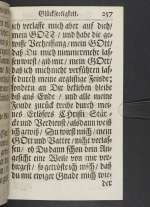 Glückseeligkeit. 257
ich verlasse mich aber auf dich/
mein GOTT / und habe die ge-
wisse Verheissung/ mein GOtt/
daß Du mich nimmermehr las-
sen wirst/ gib mir/ mein GOtt/
daß ich mich nicht verführen las-
se durch meine arglistige Feinde/
sondern an Dir bekleben bleibe
bis auf Ende / und alle meine
Feinde zurück treibe durch mei-
nes Erlösers Christi Stär-
cke und Verdienst/ alsdann weiß
ich gewiß/ Du wirst mich/ mein
GOtt und Vatter/ nicht verlas-
sen/ ob Du dann schon dein An-
gesicht eine Weile von mir ver-
birgest/ so getröste ich mich/ daß
du mit ewiger Gnade mich wie-
der